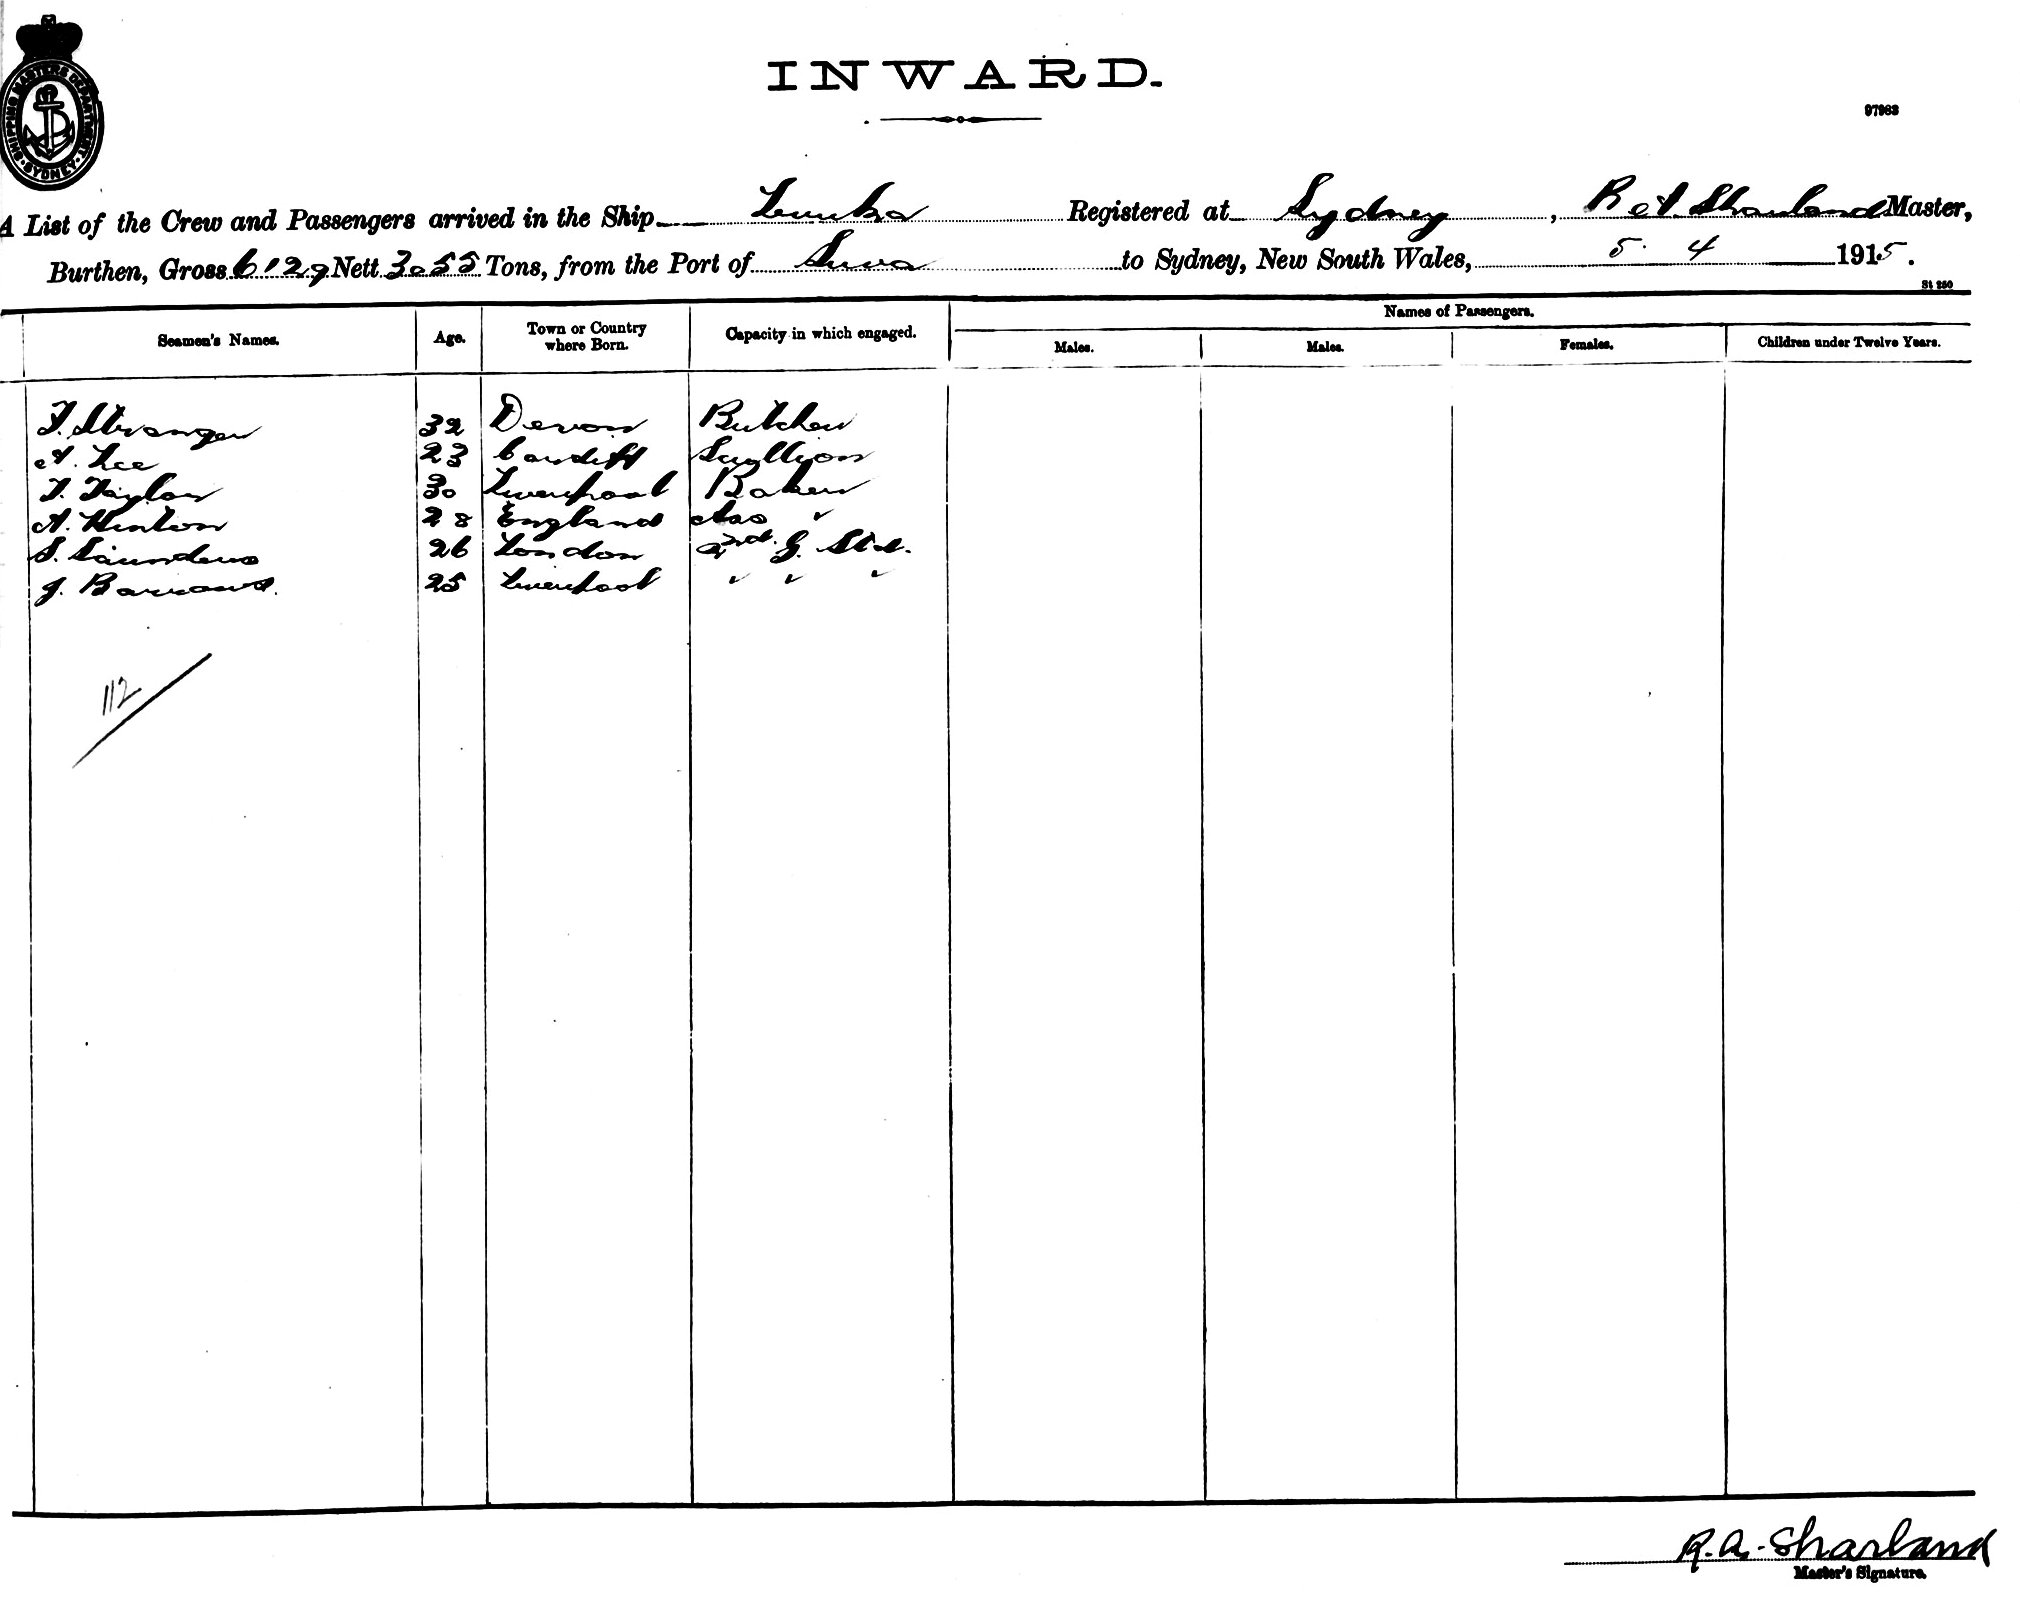 SHIPPING MASTERS DEPARTMENT · SYDNEY ·
INWARD.
97963
A List of the Crew and Passengers arrived in the Ship Levuka Registered at Sydney, R A Sharland Master,
Burthen, Gross 6129 Nett 3055 Tons, from the Port of Suva to Sydney, New South Wales, 5. 4 1915.
St 250
Seamen's Names. Age. Town or Country where Born. Capacity in which engaged. Names of Passengers.
Males. Males. Females. Children under Twelve Years.
F. Stranger 32 Devon Butcher
A. Lee 23 Cardiff Scullion
T. Taylor 30 Liverpool Baker
A. Hinton 28 England Ass "
S. Saunders 26 London 2nd. G. Std.
J. Barrows. 25 Liverpool " " "
112
R. A. Sharland
Master's Signature.